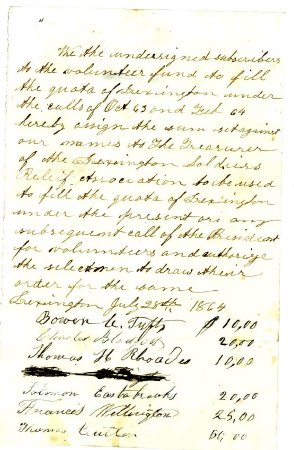 We the undersigned subscribers
to the volunteer fund to fill
the quota of Lexington under
the calls of Oct 63 and Feb 64
hereby assign the sum set against
our names to the Treasurer
of the Lexington Soldiers
Relief Association to be used
to fill the quota of Lexington
under the present or any
subsequent call of the President
for volunteers and authorize
the selectmen to draw their
order for the same
Lexington July 28th 1864
Bowen Tufts $10,00
Charles 20,00
Thomas H Rhoades 10,00
Solomon Eastabrooks 20,00
Francis Wellington 25,00
Thomas 50,00